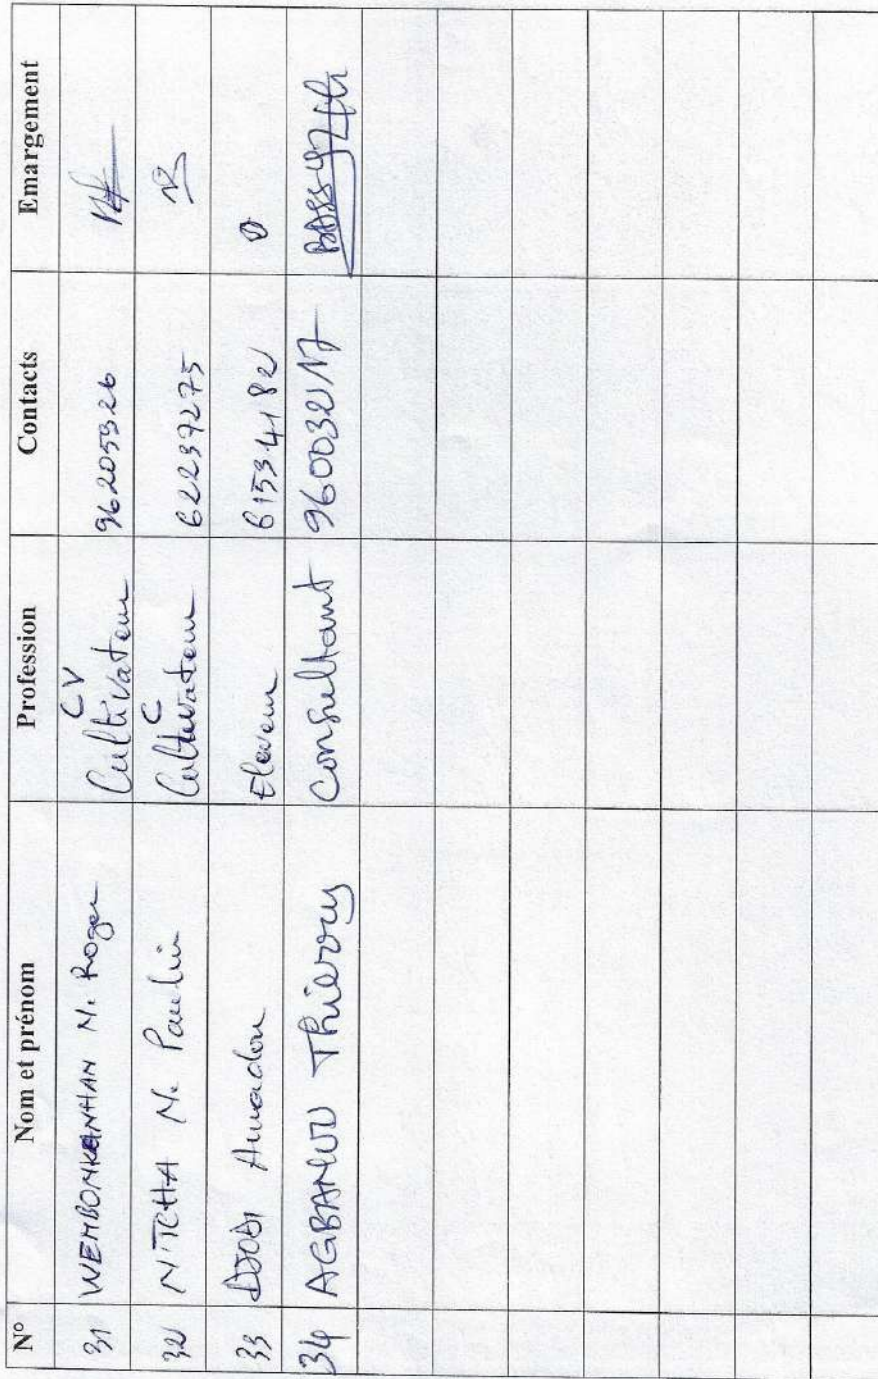 N° Nom et prénom Profession Contacts Emargement
31 WEMBONKANHAN N. Roger CV Cultivateur 96205326
32 N'TCHA N. Paulin C Cultivateur 62237275
33 Amadou Eleveur 61534182
34 Thierry Consultant 96003217